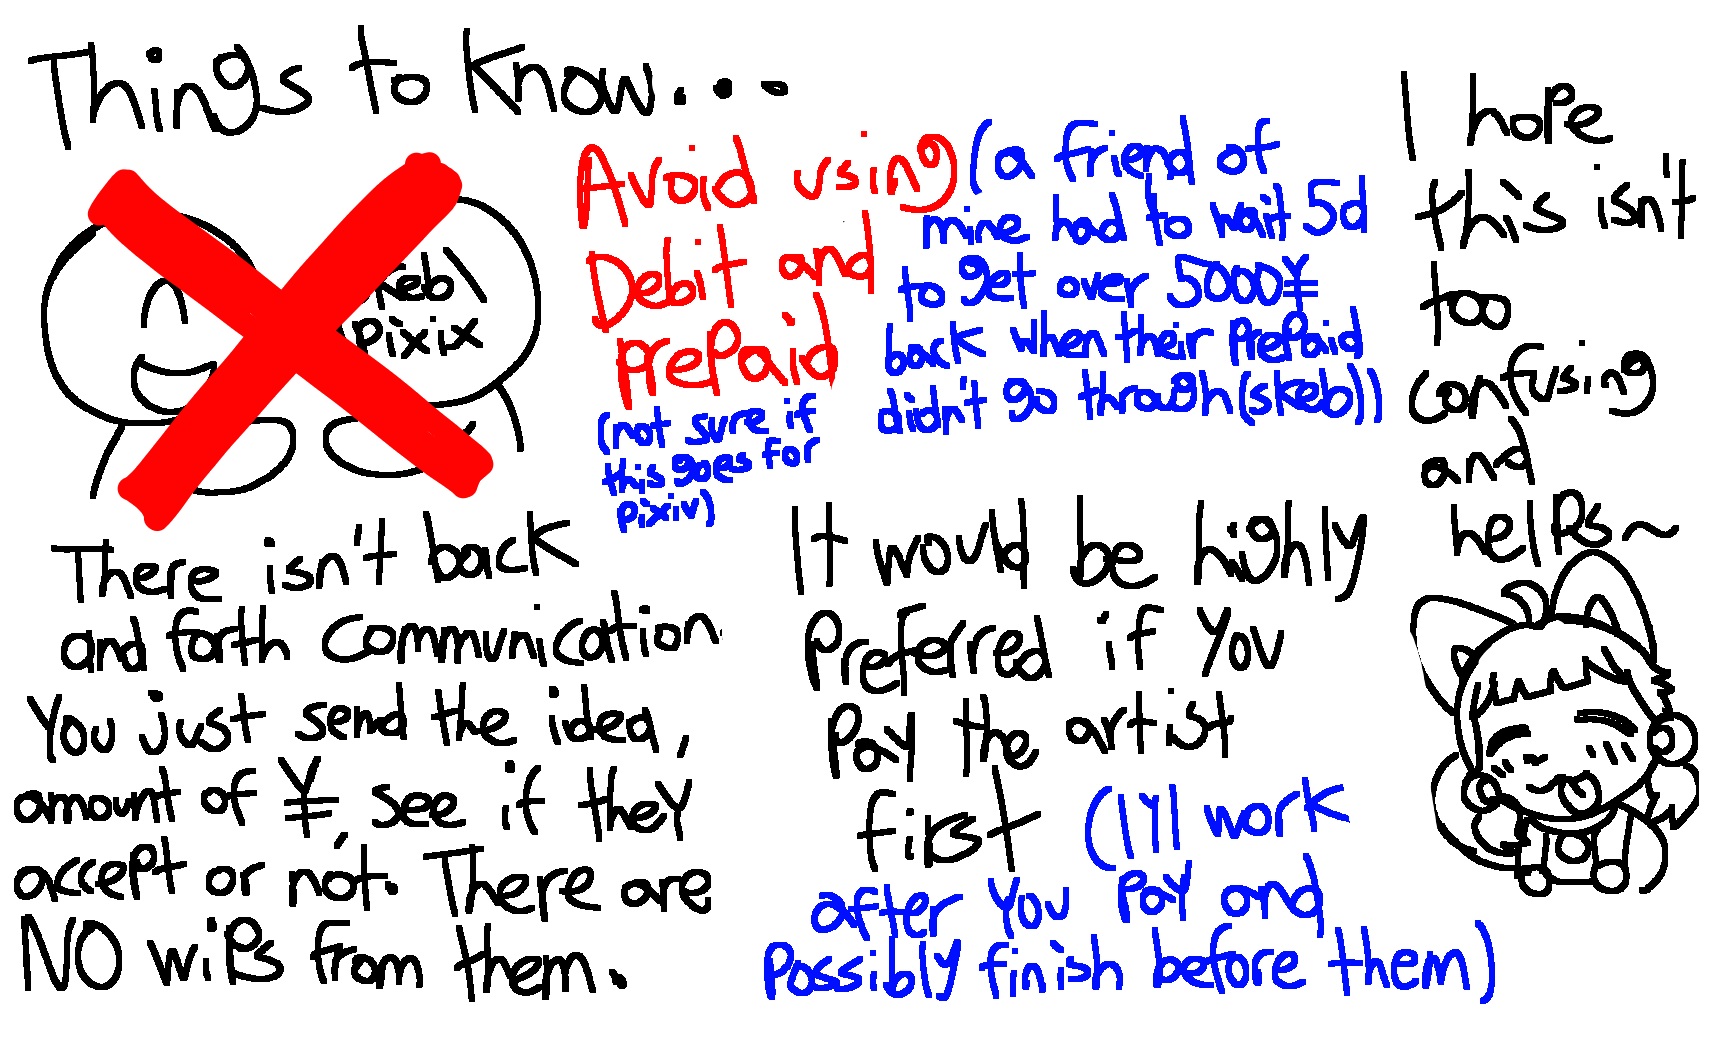 Things to know...
skeb\
pixix
Avoid using
Debit and
prepaid
(a friend of
mine had to wait 5d
to get over 5000¥
back when their prepaid
didn't go through(skeb))
(not sure if
this goes for
pixiv)
There isn't back
and forth communication.
You just send the idea,
amount of ¥, see if they
accept or not. There are
NO wips from them.
It would be highly
preferred if you
pay the artist
first (I'll work
after you pay and
possibly finish before them)
I hope
this isn't
too
confusing
and
helps~